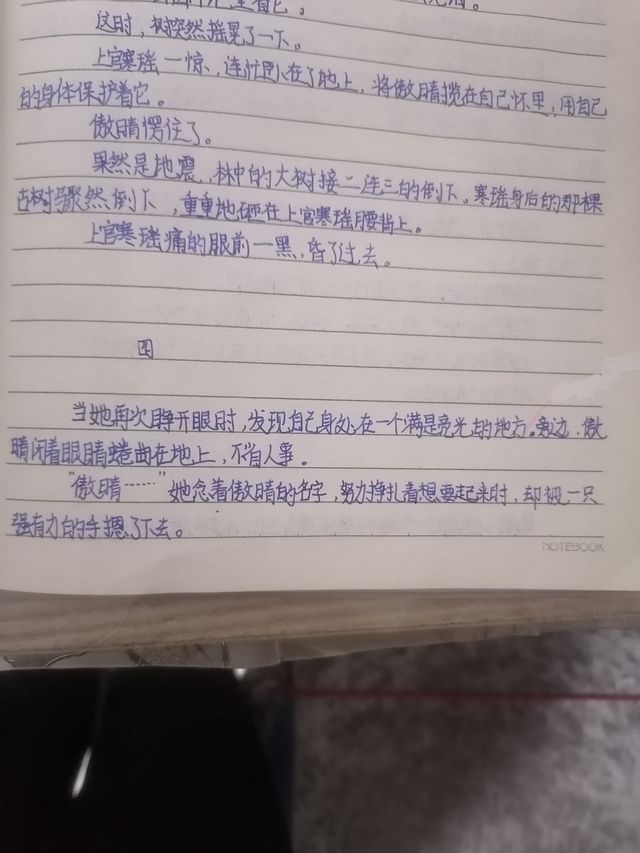 这时，树突然摇晃了一下。
上官寒瑶一惊，连忙趴在了地上，将傲晴揽在自己怀里，用自己
的身体保护着它。
傲晴愣住了。
果然是地震，林中的大树接二连三的倒下。寒瑶身后的那棵
古树骤然倒下，重重地砸在上官寒瑶腰背上。
上官寒瑶痛的眼前一黑，昏了过去。
四
当她再次睁开眼时，发现自己身处在一个满是亮光的地方。旁边，傲
晴闭着眼睛蜷曲在地上，不省人事。
“傲晴……”她念着傲晴的名字，努力挣扎着想要起来时，却被一只
强有力的手摁了下去。
NOTEBOOK